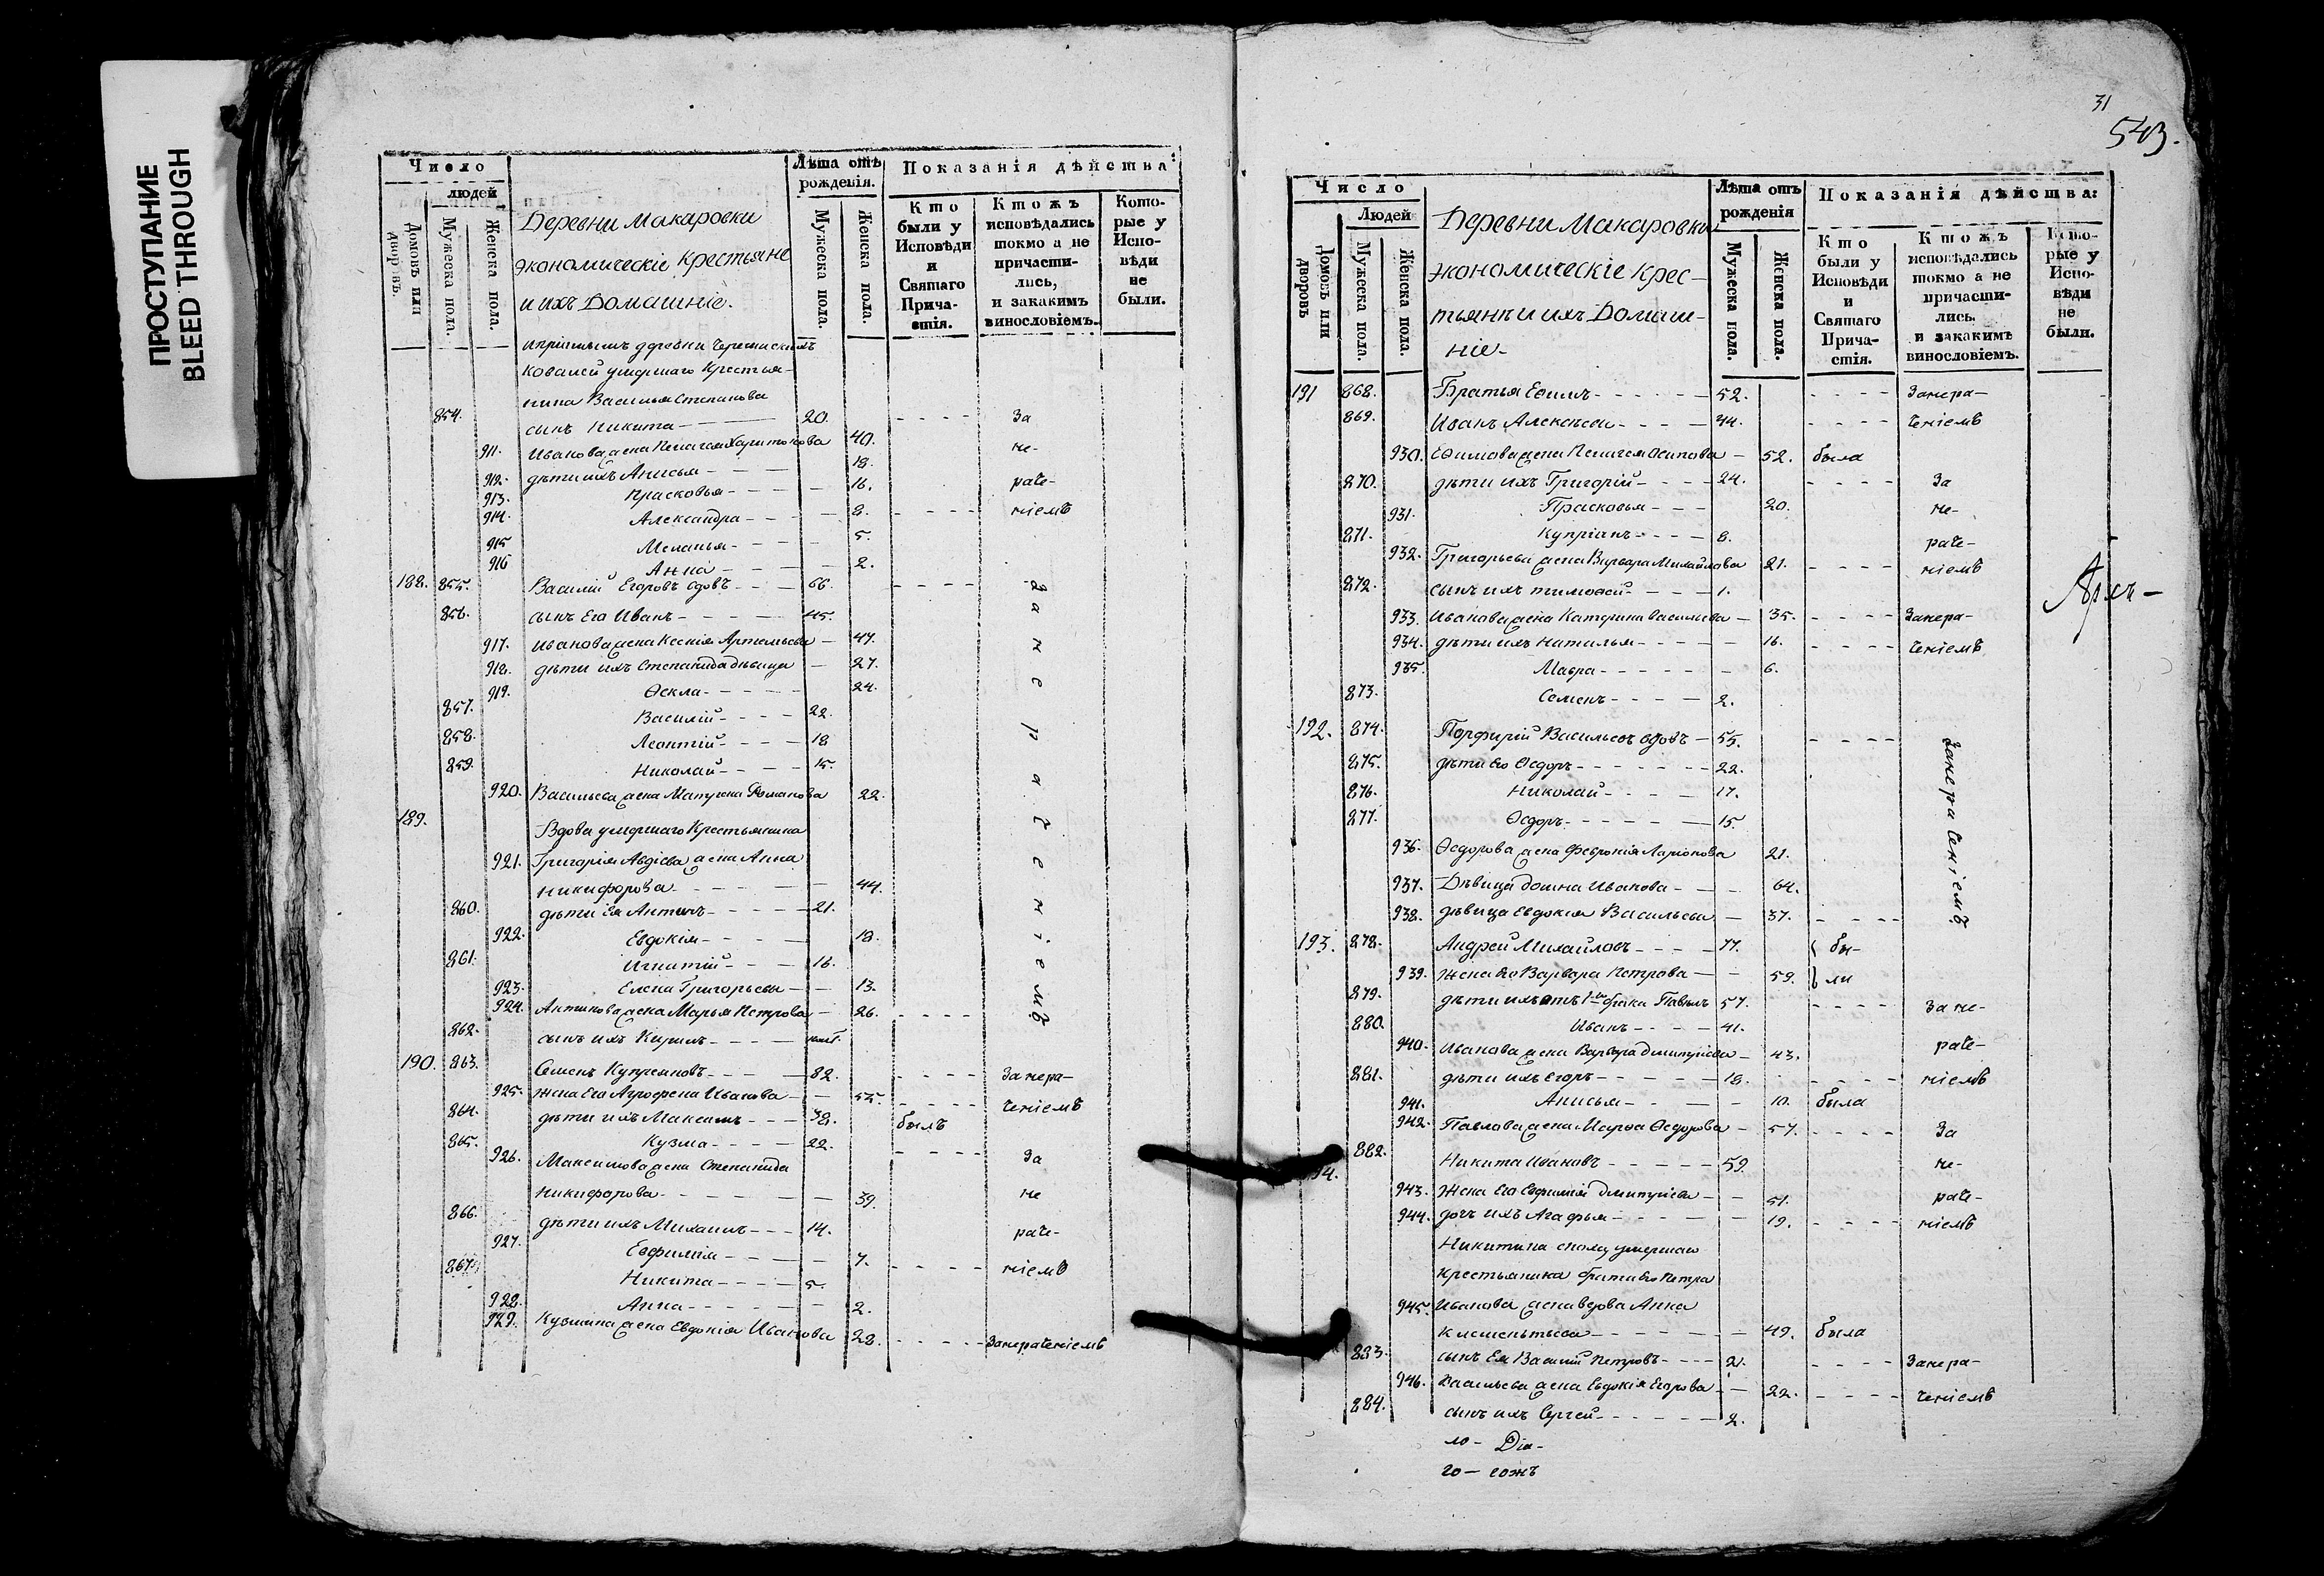 ПРОСТУПАНИЕ
BLEED THROUGH
Число
людей
Домовъ или дворовъ.
Мужеска пола.
Женска пола.
Деревни Макаровки
экономическіе крестьяне
и ихъ Домашніе.
Лѣта отъ рожденія.
Мужеска пола.
Женска пола.
Показанія дѣйства:
Кто были у Исповѣди и Святаго Причастія.
Ктожъ исповѣдались токмо а не причастились, и закакимъ винословіемъ.
Которые у Исповѣди не были.
деревни
умершаго Крестья-
нина Василья Степанова
854. сынъ Никита 20. За
911. Иванова жена Пелагея Харитонова 40. не-
912. дѣти ихъ Анисья 18.
913. Прасковья 16. раче-
914. Александра 8. ніемъ
915 Меланья 5.
916 Анна 2.
188. 855. Василій Егоровъ вдовъ 66. за нераченіемъ
856. сынъ Его Иванъ 45.
917. Иванова жена Ксенія Артемьева 47.
918. дѣти ихъ Степанида дѣвица 27.
919. Ѳекла 24.
857. Василій 22.
858. Леонтій 18
859. Николай 15.
920. Васильева жена Матрена Романова 22.
189. Вдова умершаго Крестьянина
921. Григорія Авдѣева жена Анна
Никифорова 44.
860. дѣти Ея Антипъ 21.
922. Евдокія 18.
861. Игнатій 16.
923. Елена Григорьева 13.
924. Антипова жена Марья Петрова 26.
862. сынъ ихъ Кирилъ
190. 863. Семенъ Купреяновъ 82. Занера-
925. жена Его Агрофена Иванова 55. ченіемъ
864. дѣти ихъ Максимъ 38. былъ
865. Кузма 22.
926. Максимова жена Степанида За
Никифорова 39. не
866. дѣти ихъ Михаилъ 14. раче-
927. Евфимія 7.
867. Никита 5. ніемъ
928. Анна 2.
929. Кузмина жена Евдокія Иванова 28. Занераченіемъ
31
543.
Число
Людей
Домовъ или дворовъ
Мужеска пола.
Женска пола.
Деревни Макаровки
экономическіе крес-
тьянѣ и ихъ Домаш-
ніе
Лѣта отъ рожденія
Мужеска пола.
Женска пола.
Показанія дѣйства:
Кто были у Исповѣди и Святаго Причастія.
Ктожъ исповѣдались токмо а не причастились. и закакимъ винословіемъ.
Которые у Исповѣди не были.
191 868. Братья Евимъ 52. Занера-
869. Иванъ Алексѣевы 44. ченіемъ
930. Евимова жена Пелагея Осипова 52. была
870. дѣти ихъ Григорій 24. За
931. Прасковья 20. не-
871. Купріанъ 8. раче-
932. Григорьева жена Варвара Михайлова 21. ніемъ
872. сынъ ихъ Тимоѳей 1.
933. Иванова жена Катерина Васильева 35. Занера-
934. дѣти ихъ Наталья 16. ченіемъ
935. Мавра 6.
873. Семенъ 2.
192. 874. Порфирій Васильевъ вдовъ 55. занераченіемъ
875. дѣти Его Ѳедоръ 22.
876. Николай 17.
877. Ѳедоръ 15.
936. Ѳедорова жена Февронія Ларіонова 21.
937. Дѣвица Домна Иванова 64.
938. дѣвица Евдокія Васильева 37.
193. 878. Андрей Михайловъ 77. бы-
939. Жена Его Варвара Петрова 59. ли
879. дѣти ихъ отъ 1го брака Павелъ 57. За не-
880. Иванъ 41.
940. Иванова жена Варвара Дмитріева 43. раче-
881. дѣти ихъ Егоръ 18. ніемъ
941. Анисья 10. была
942. Павлова жена Марѳа Ѳедорова 57. За
882. Никита Ивановъ 59. не-
943. Жена Его Евфимія Дмитріева 51. раче-
944. дочь ихъ Агафья 19. ніемъ
Никитина сноха умершаго
Крестьянина брата Его Петра
945. Иванова жена вдова Анна
Клементьева 49. была
883. сынъ Ея Василій Петровъ 21. Занера-
946. Васильева жена Евдокія Егорова 22. ченіемъ
884. сынъ ихъ Сергей 2.